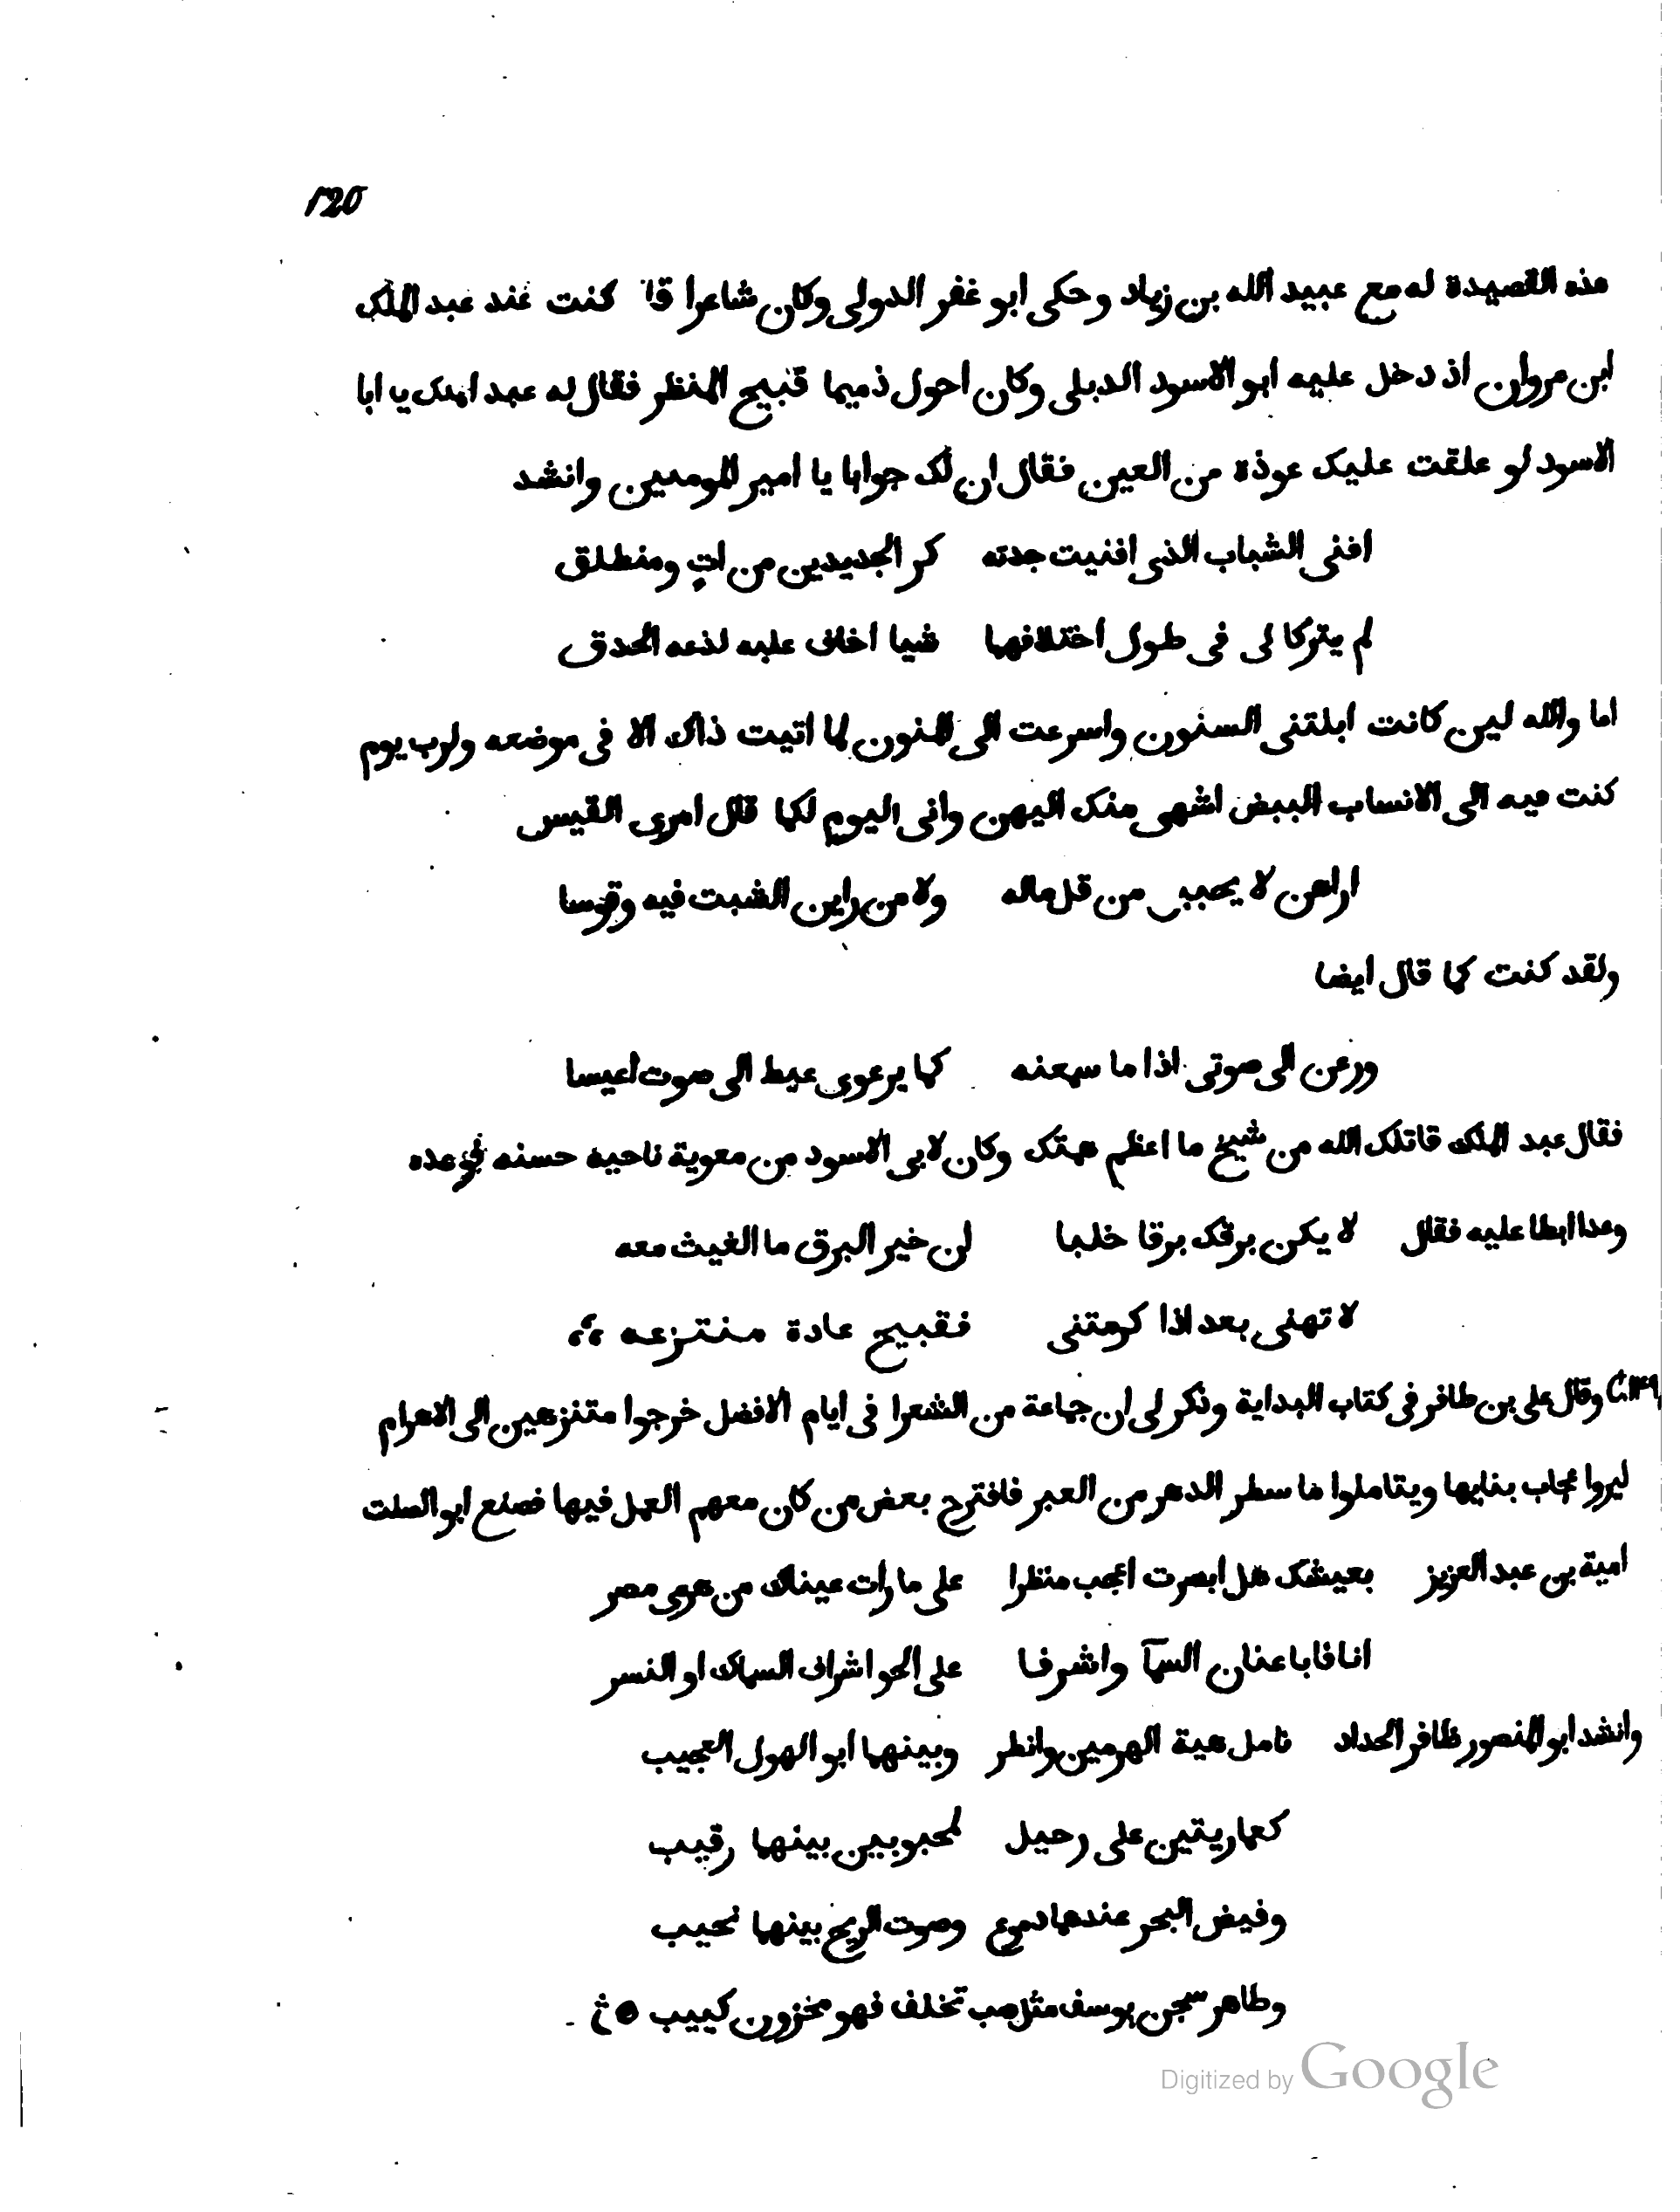 120
هذه القصيدة له مع عبيد الله بن زياد وحكى ابو غفر الدولى وكان شاعرا قا كنت عند عبد الملك
ابن مروان اذ دخل عليه ابو الاسود الديلى وكان احول ذميما قبيح المنظر فقال له عبد الملك يا ابا
الاسود لو علقت عليك عوذة من العين فقال ان لك جوابا يا امير المومنين وانشد
افنى الشباب الذى افنيت جدته كر الجديدين من ات ومنطلق
لم يتركا لى فى طول اختلافهما شيا اخاف عليه لذعه الحدق
اما والله لين كانت ابلتنى السنون واسرعت الى المنون لما اتيت ذاك الا فى موضعه ولرب يوم
كنت فيه الى الانساب البيض اشهى منك اليهن وانى اليوم لكما قال امرى القيس
اراهن لا يحببن من قل ماله ولا من راين الشيب فيه وقوسا
ولقد كنت كما قال ايضا
ورعن الى صوتى اذا ما سمعنه كما يرعوى عيط الى صوت اعيسا
فقال عبد الملك قاتلك الله من شيخ ما اعظم همتك وكان لابى الاسود من معوية ناحية حسنه فوعده
وعدا ابطا عليه فقال لا يكن برقك برقا خلبا لن خير البرق ما الغيث معه
لا تهنى بعد اذا كرمتنى فقبيح عادة منتزعه
وقال على بن ظافر فى كتاب البداية وذكر لى ان جماعة من الشعرا فى ايام الافضل خرجوا متنزهين الى الاهرام
ليروا عجاب بنايها ويتاملوا ما سطر الدهر من العبر فاقترح بعض من كان معهم العمل فيها فصنع ابو الصلت
امية بن عبد العزيز بعيشك هل ابصرت اعجب منظرا على ما رات عيناك من هرمى مصر
انافا باعنان السمآ واشرفا على الجو اشراف السماك او النسر
وانشد ابو المنصور ظافر الحداد تامل هية الهرمين وانظر وبينهما ابو الهول العجيب
كعماريتين على رحيل لمحبوبين بينهما رقيب
وفيض البحر عندهما دموع وصوت الريح بينهما نحيب
وظاهر سجن يوسف مثل صب تخلف فهو محزون كييب
Digitized by Google